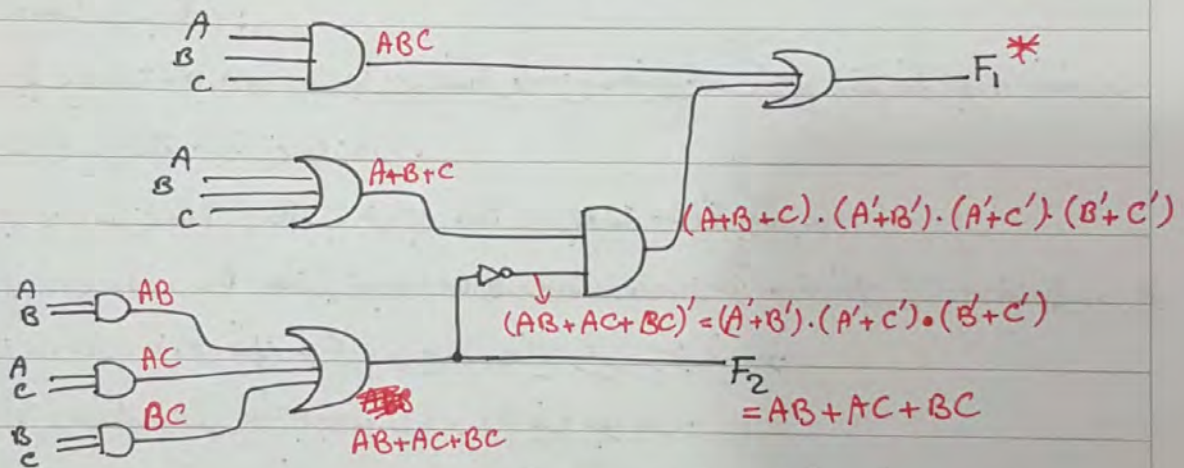 A
B
C
ABC
F₁ *
A
B
C
A+B+C
(A+B+C).(A'+B').(A'+C').(B'+C')
A
B
AB
(AB+AC+BC)' = (A'+B').(A'+C').(B'+C')
A
C
AC
F₂
= AB+AC+BC
B
C
BC
AB+AC+BC